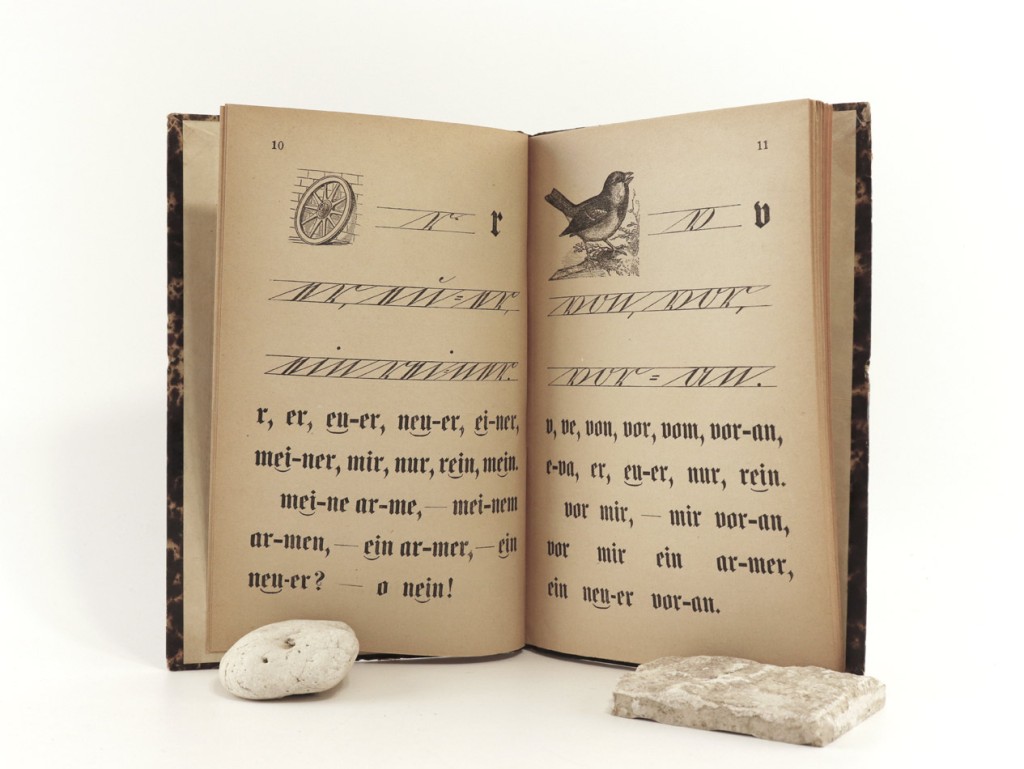 10
r r
er, eu=er,
ein rei=ner.
r, er, eu-er, neu-er, ei-ner,
mei-ner, mir, nur, rein, mein.
mei-ne ar-me, — mei-nem
ar-men, — ein ar-mer, — ein
neu-er? — o nein!
11
v v
von, vor,
vor=an.
v, ve, von, vor, vom, vor-an,
e-va, er, eu-er, nur, rein.
vor mir, — mir vor-an,
vor mir ein ar-mer,
ein neu-er vor-an.